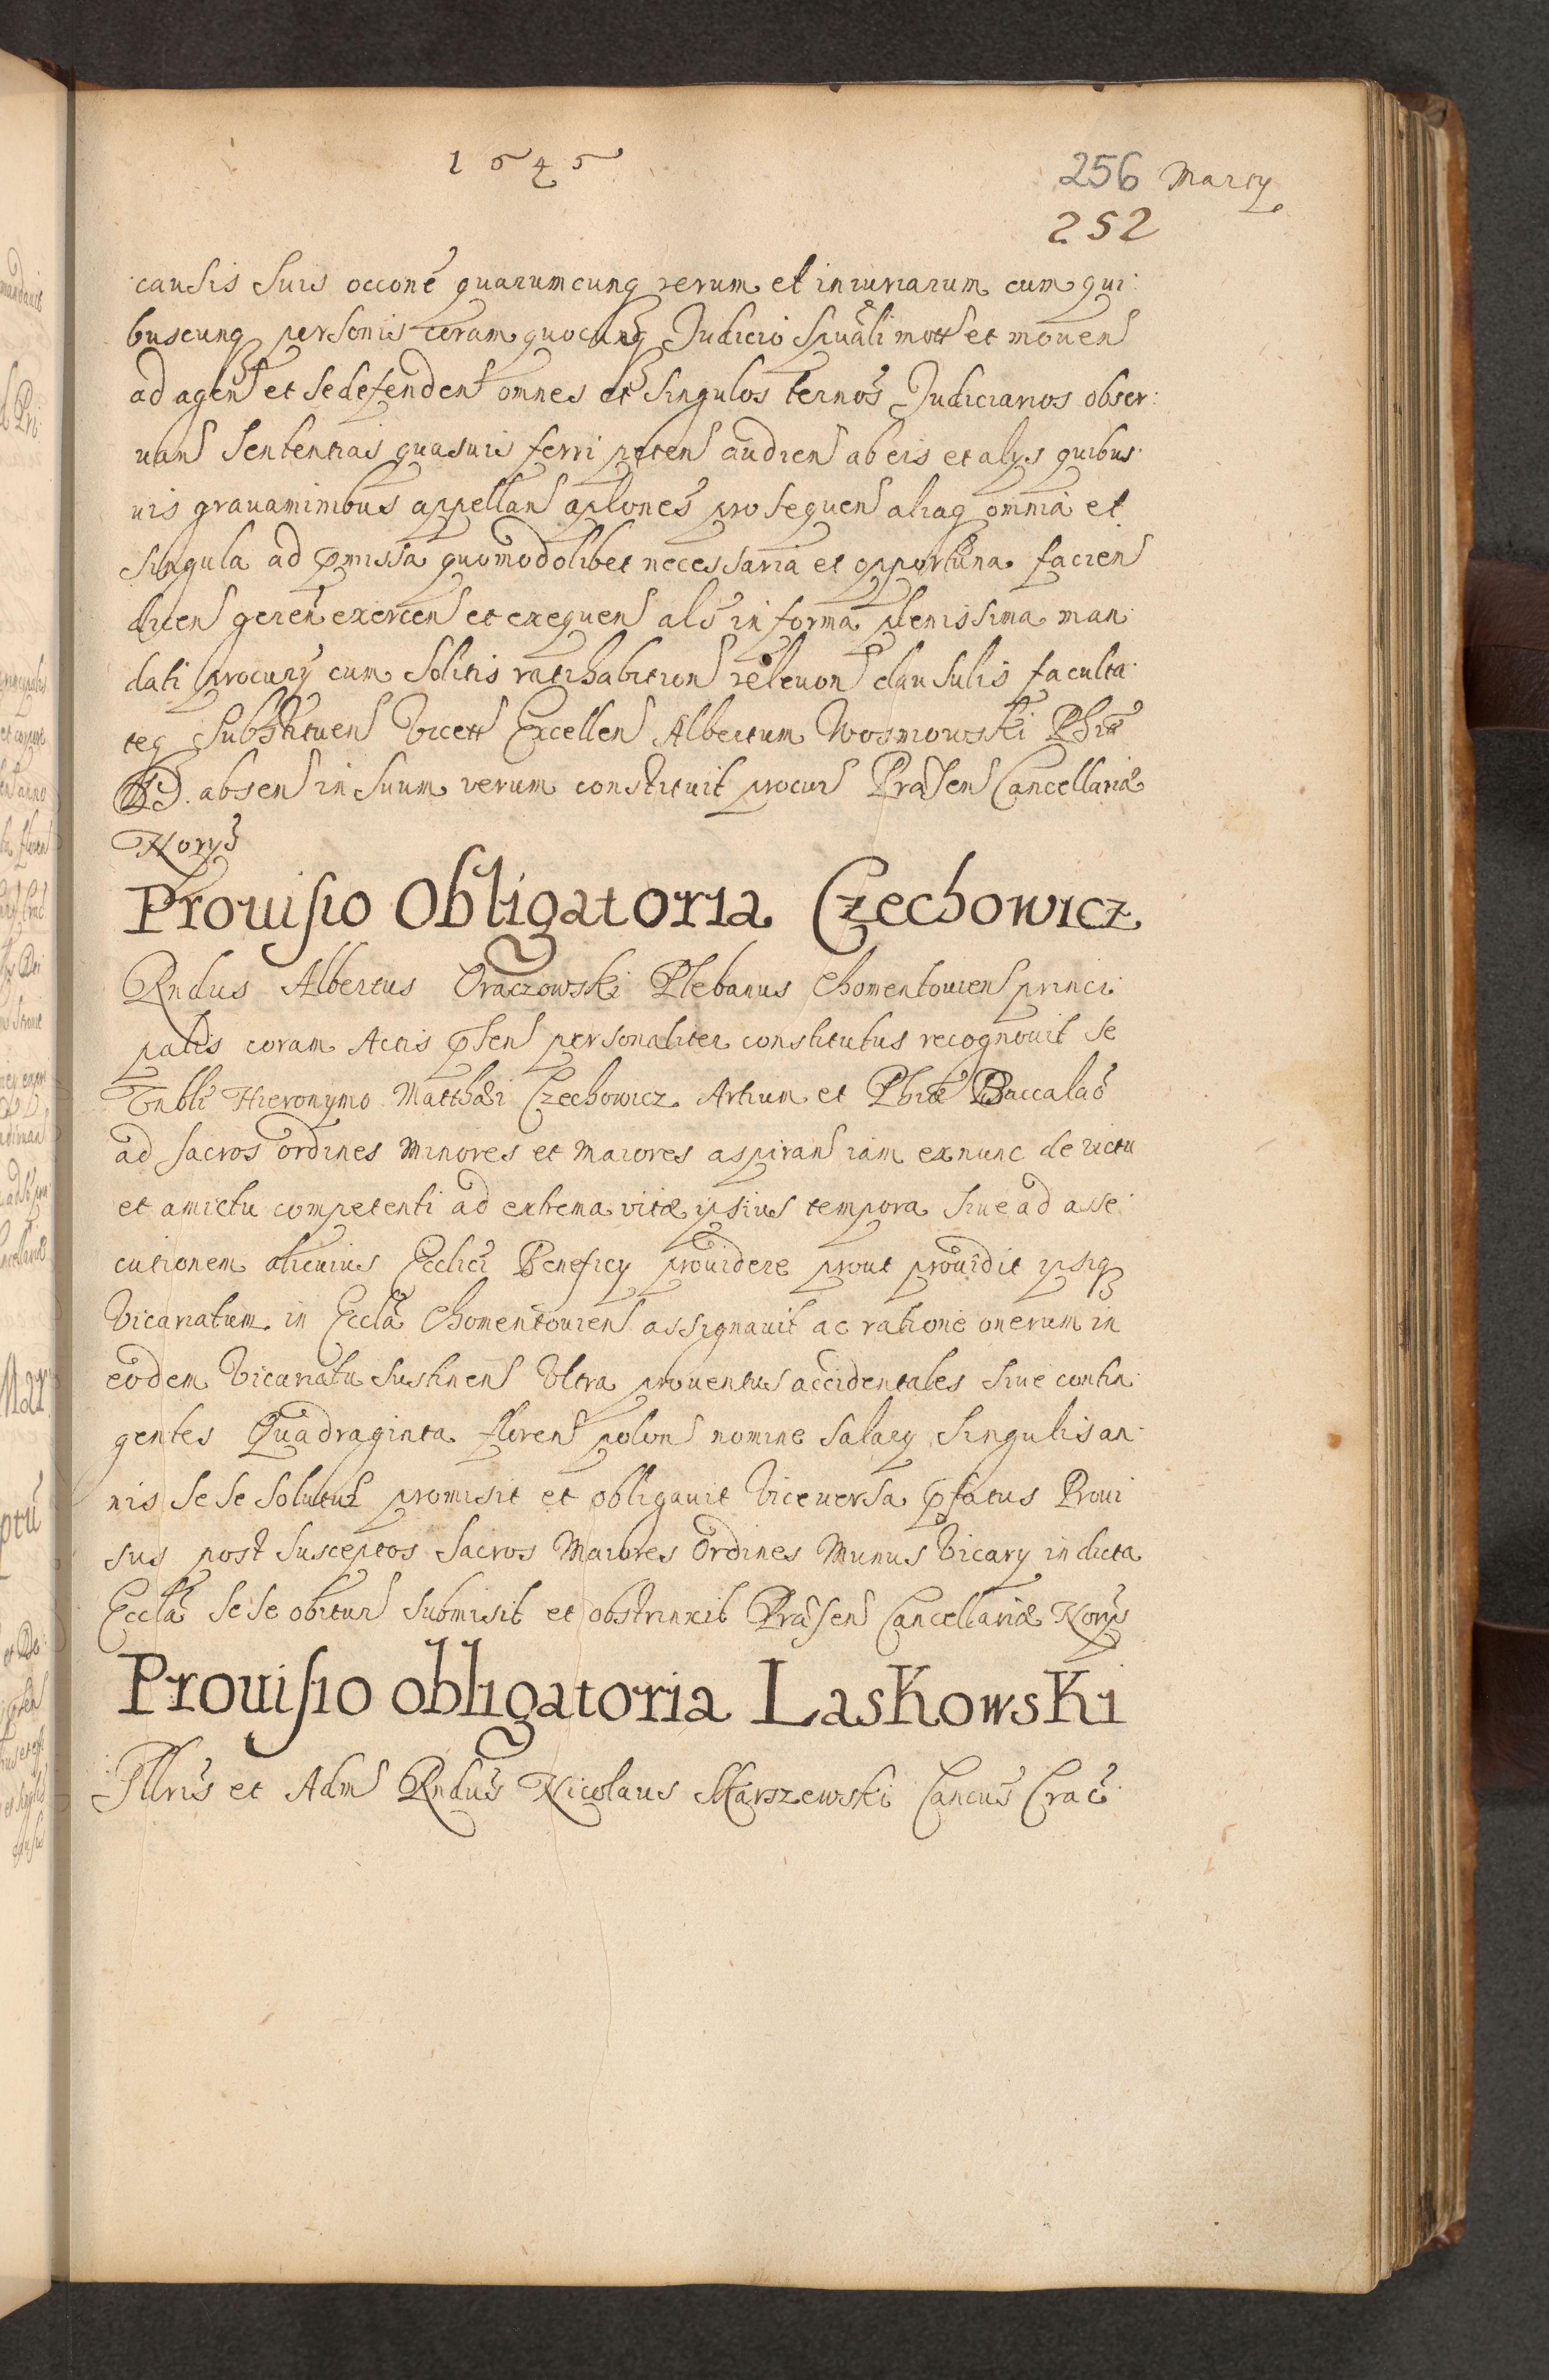 1645
256 Marty
252
causis suis occone quarumcunq rerum et iniuriarum cum qui:
buscunq personis coram quocunq Judicio spuali mott et mouen
ad agen et se defenden omnes et singulos ternos Judiciarios obser:
uan sententias quasuis ferri peten audien ab eis et alys quibus:
uis grauaminibus appellan aplones prosequen aliaq omnia et
singula ad pmissa quomodolibet necessaria et opportuna facien
dicen geren exercen et exequen als in forma plenissima man:
dati procury cum solitis ratihabition releuon clausulis faculta:
teq substituen Excellen Albertum Wosniowski Phiæ
D. absen in suum verum constituit procur Præsen Cancellariæ
Norys
Prouisio Obligatoria Czechowicz
Rndus Albertus Oraczowski Plebanus Chomentouien princi:
palis coram Actis psen personaliter constitutus recognouit se
Hieronymo Matthæi Czechowicz Artium et Phiæ Baccalao
ad sacros ordines Minores et Maiores aspiran iam ex nunc de victu
et amictu competenti ad extrema vitæ ipsius tempora siue ad asse:
cutionem alicuius Ecclici Beneficy prouidere prout prouidit ipsiq
Vicariatum in Eccla Chomentouien assignauit ac ratione onerum in
eodem Vicariatu sustinen Vltra prouentus accidentales siue contin:
gentes Quadraginta floren polon nomine salary singulis an:
nis sese solutur promisit et obligauit Viceuersa pfatus Proui
sus post susceptos sacros Maiores Ordines Munus Vicary in dicta
Eccla sese obitur submisit et obstrinxit Præsen Cancellariæ Norys
Prouisio obligatoria Laskowski
Pllris et Adm Rndus Nicolaus Marszewski Cancus Crac